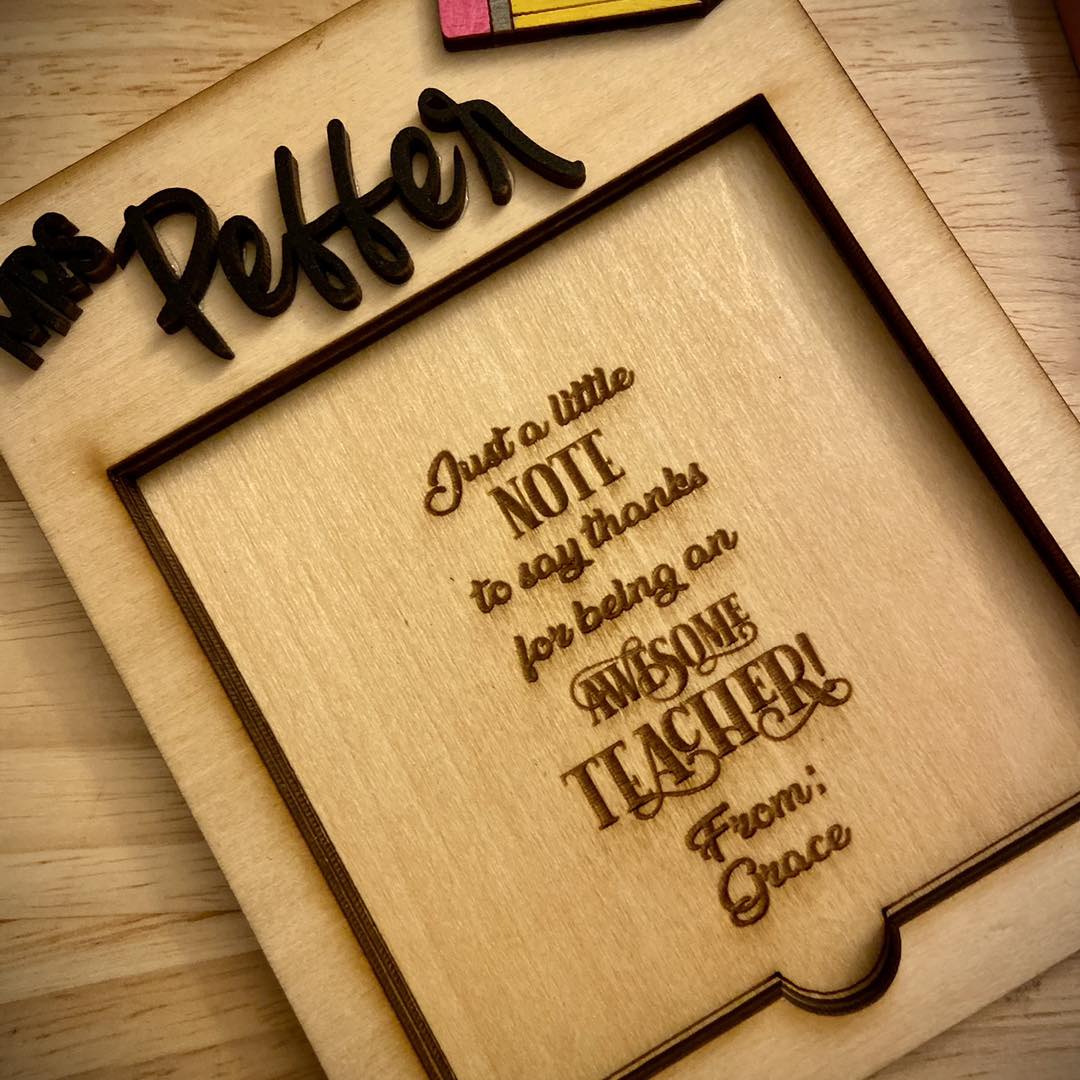 MRS Peffer
Just a little
NOTE
to say thanks
for being an
AWESOME
TEACHER!
From:
Grace